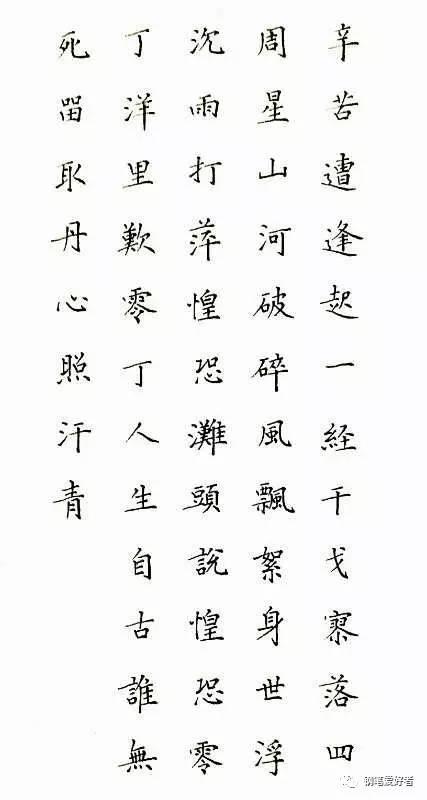 辛苦遭逢起一経干戈寮落四
周星山河破碎風飄絮身世浮
沉雨打萍惶恐灘頭説惶恐零
丁洋里歎零丁人生自古誰無
死留取丹心照汗青
钢笔爱好者